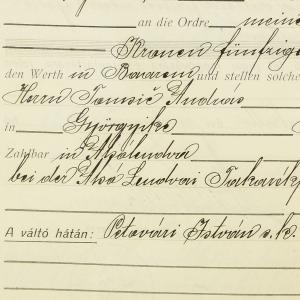 an die Ordre meine
Kronen fünfzig
den Werth in Baarem und stellen solche
Herrn Tomsič András
in Györgyike
Zahlbar in Alsólendva
bei der Alsó Lendvai Takarék
A váltó hátán: Petovári István s. k.